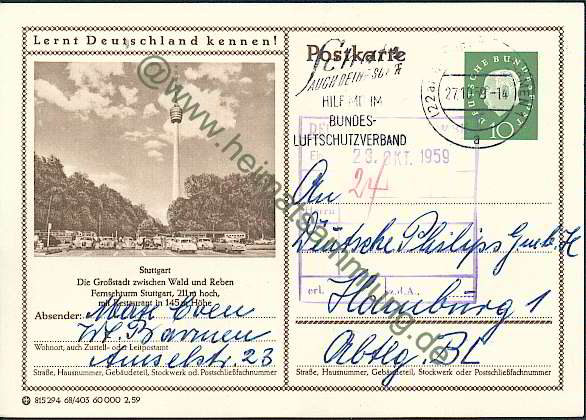 Lernt Deutschland kennen!
Stuttgart
Die Großstadt zwischen Wald und Reben
Fernsehturm Stuttgart, 211 m hoch,
mit Restaurant in 145 m Höhe
Absender: Max Even
W.-Barmen
Wohnort, auch Zustell- oder Leitpostamt
Amselstr. 23
Straße, Hausnummer, Gebäudeteil, Stockwerk od. Postschließfachnummer
815 294 68/403 60 000 2.59
Postkarte
AUCH DEIN
HILF MIT IM
BUNDES-
LUFTSCHUTZVERBAND
(22a)
-14
a
DEUTSCHE BUNDESPOST
10
29. OKT. 1959
24
An
Deutsche Philips GmbH
erl. z.d.A.
Hamburg 1
Abtlg. BL
Straße, Hausnummer, Gebäudeteil, Stockwerk oder Postschließfachnummer
@www.heimatsammlung.de